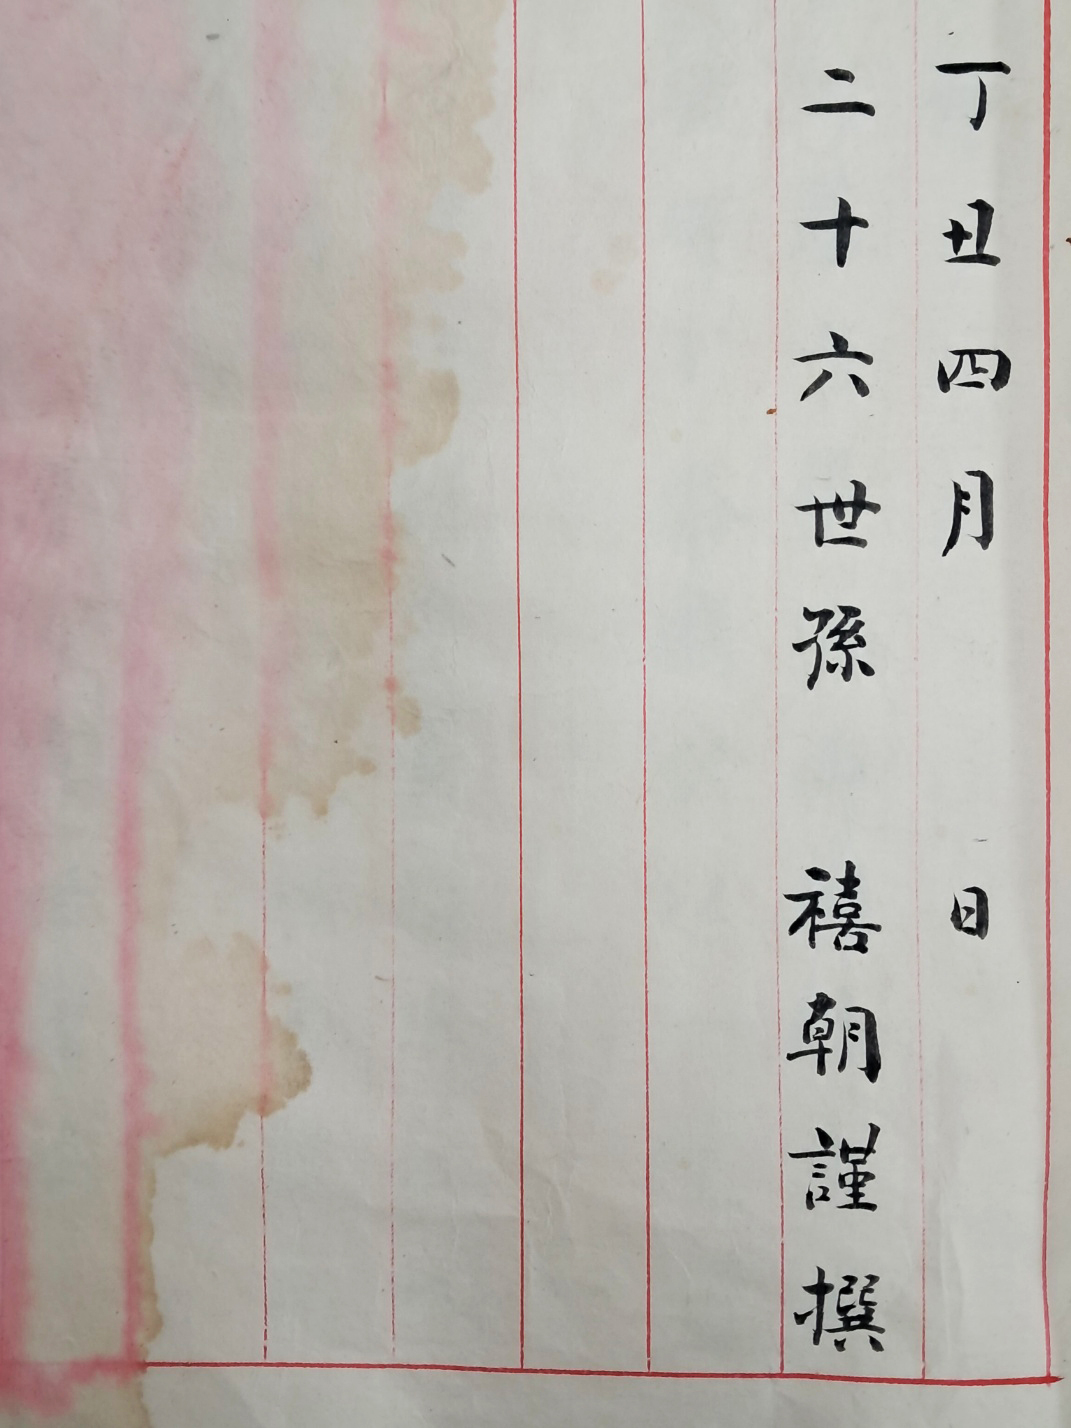 丁丑四月　日
二十六世孫　禧朝謹撰